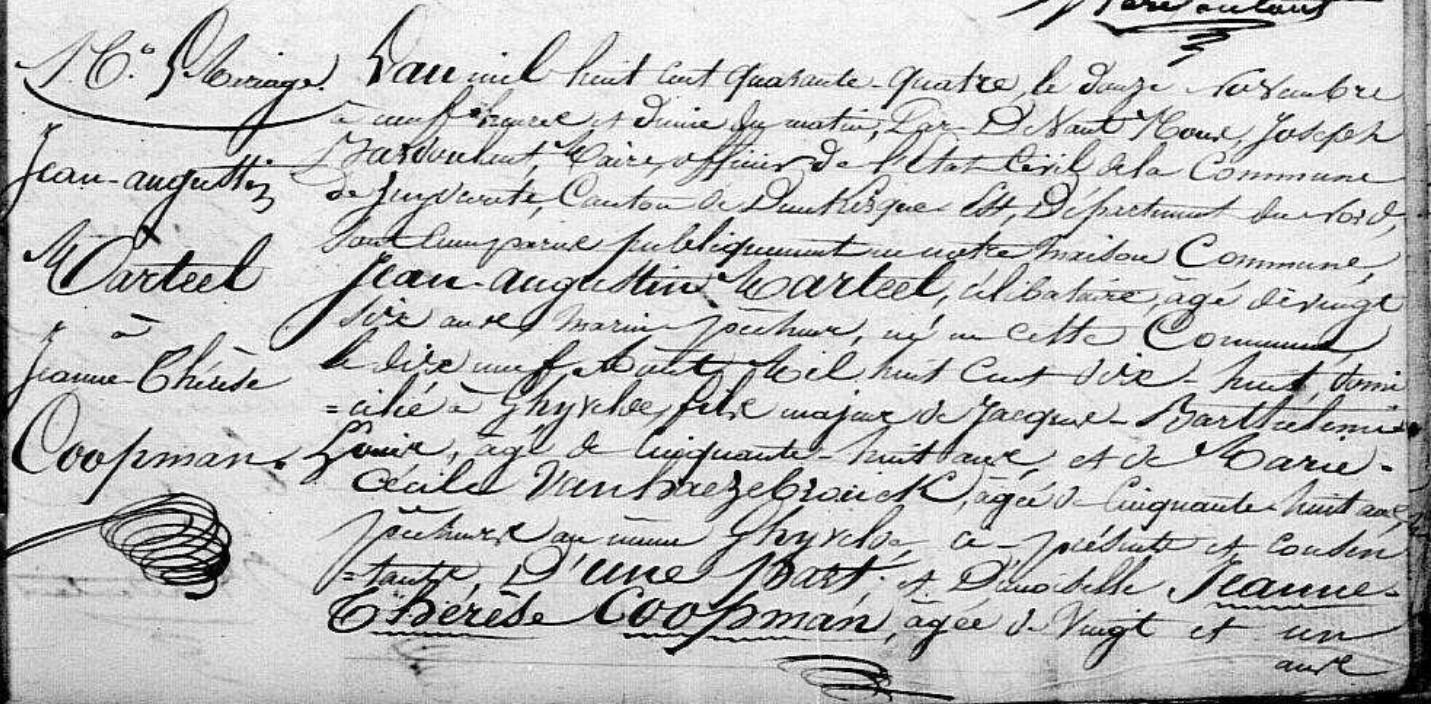 Mariage
Jean-augustin
Marteel
à
Jeanne-Thérèse
Coopman.
L'an mil huit cent quarante-quatre, le douze Novembre
à neuf heures et dimie du matin, Par-Devant Nous, Joseph
Maire, officier de l'Etat Civil de la Commune
de Zuydcoote, Canton de Dunkerque Est, Département du Nord,
sont comparus publiquement en notre maison Commune,
Jean-augustin Marteel, célibataire, âgé de vingt
six ans, marin pêcheur, né en cette Commune
le dix neuf Août Mil huit Cent dix-huit, domi
=cilié à Ghyvelde, fils majeur de Jacques-Barthélemi
Louis, âgé de Cinquante-huit ans, et de Marie-
Cécile Vanhaezebrouck, âgée de Cinquante huit ans,
pêcheurs au même Ghyvelde, ci-présents et consen
=tants, D'une Part; et Dimoiselle Jeanne-
Thérèse Coopman, âgée de Vingt et un
ans